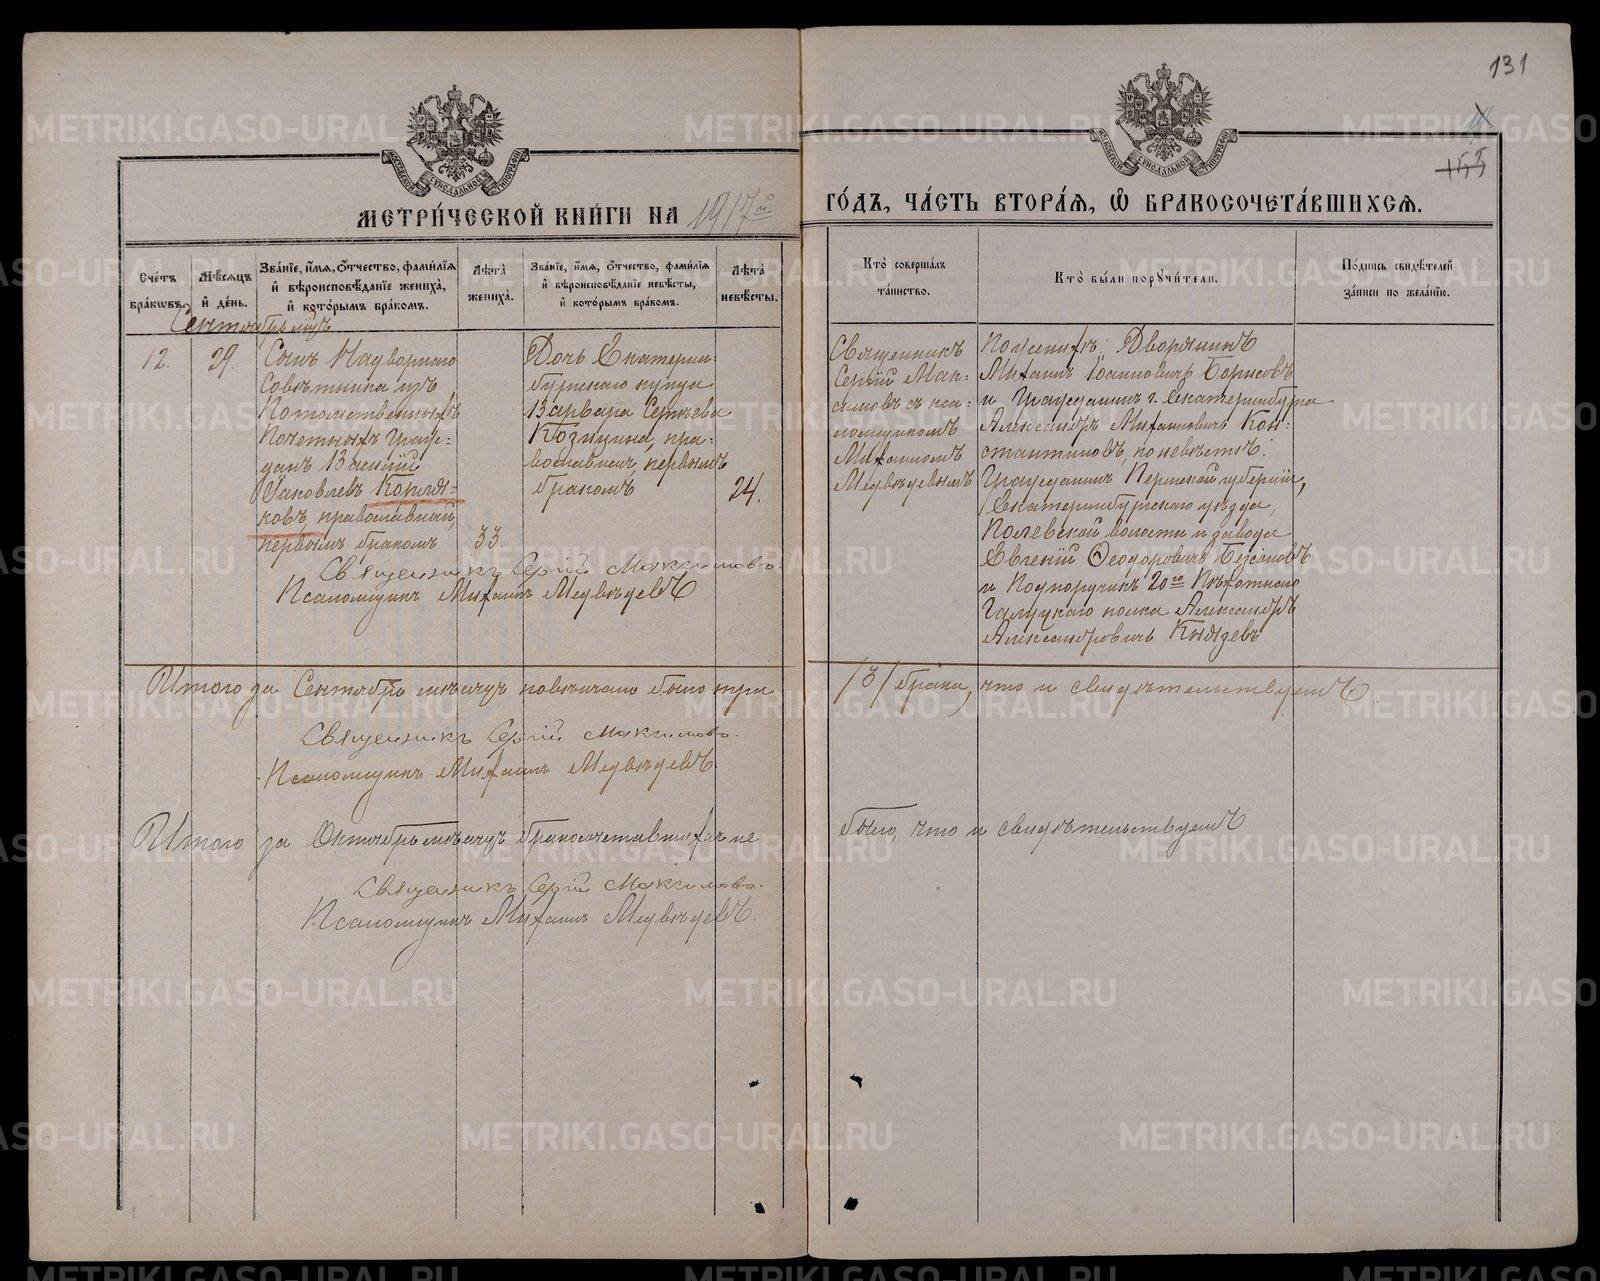 131
155
МЕТРИ́ЧЕСКОЙ КНИ́ГИ НА 1917го
ГО́ДЪ, ЧА́СТЬ ВТОРА́Я, Ѽ БРАКОСОЧЕТА́ВШИХСЯ.
Сче́тъ бра́кѡвъ.
Мѣ́сяцъ и҆ де́нь.
Зва́нїе, и҆́мя, ѻ҆́тчество, фами́лїя и҆ вѣроисповѣ́данїе жениха̀, и҆ кото́рымъ бра́комъ.
Лѣ́та жениха̀.
Зва́нїе, и҆́мя, ѻ҆́тчество, фами́лїя и҆ вѣроисповѣ́данїе невѣ́сты, и҆ кото́рымъ бра́комъ.
Лѣ́та невѣ́сты.
Кто̀ соверша́лъ та́инство.
Кто̀ бы́ли порꙋчи́тели.
По́дпись свидѣ́телей за́писи по жела́нїю.
Сентябрь мѣсяцъ
12.
29.
Сынъ Надворнаго
Совѣтника изъ
Потомственныхъ
Почетныхъ Граж-
данъ Василій
Яковлевъ Корыля-
ковъ, православный,
первымъ бракомъ
33.
Дочь Екатерин-
бургскаго купца
Варвара Сергѣева
Козицина, пра-
вославнаго, первымъ
бракомъ
24.
Священникъ
Сергій Мак-
симовъ съ пса-
ломщикомъ
Михаиломъ
Медвѣдевымъ
По женихѣ: Дворянинъ
Михаилъ Іоанновичъ Борисовъ
и Гражданинъ г. Екатеринбурга
Александръ Михаиловичъ Кон-
стантиновъ, по невѣстѣ:
Гражданинъ Пермской губерніи,
Екатеринбургскаго уѣзда,
Полевской волости и завода
Евгеній Ѳеодоровичъ
и Подпоручикъ 20го Пѣхотнаго
Галицкаго полка Александръ
Александровичъ Князевъ
Священникъ Сергій Максимовъ
Псаломщикъ Михаилъ Медвѣдевъ
Итого за Сентябрь мѣсяцъ повѣнчано было три /3/ брака, что и свидѣтельствуемъ
Священникъ Сергій Максимовъ.
Псаломщикъ Михаилъ Медвѣдевъ.
Итого за Октябрь мѣсяцъ бракосочетавшихся не было, что и свидѣтельствуемъ
Священникъ Сергій Максимовъ.
Псаломщикъ Михаилъ Медвѣдевъ.
METRIKI.GASO-URAL.RU